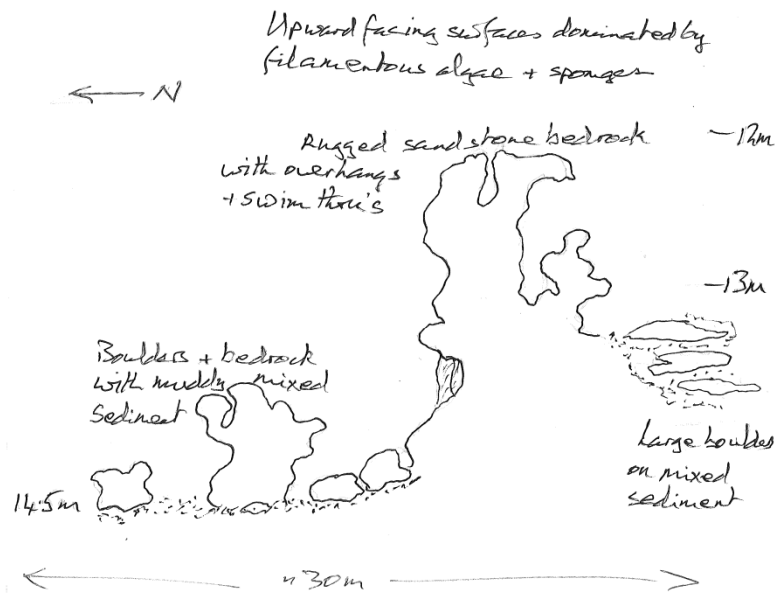 Upward facing surfaces dominated by
filamentous algae + sponges
N
Rugged sandstone bedrock
with overhangs
+ swim thru's
-12m
-13m
Boulders + bedrock
with muddy mixed
sediment
Large boulders
on mixed
sediment
14.5m
~30m